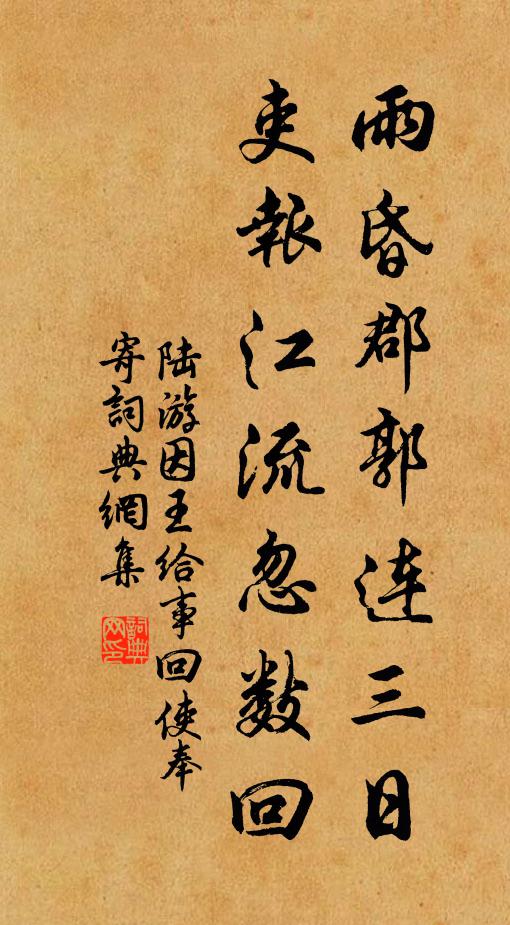 雨昏郡郭连三日
吏報江流忽数回
陆游因王给事回使奉
寄詞典網集
詞典
网印